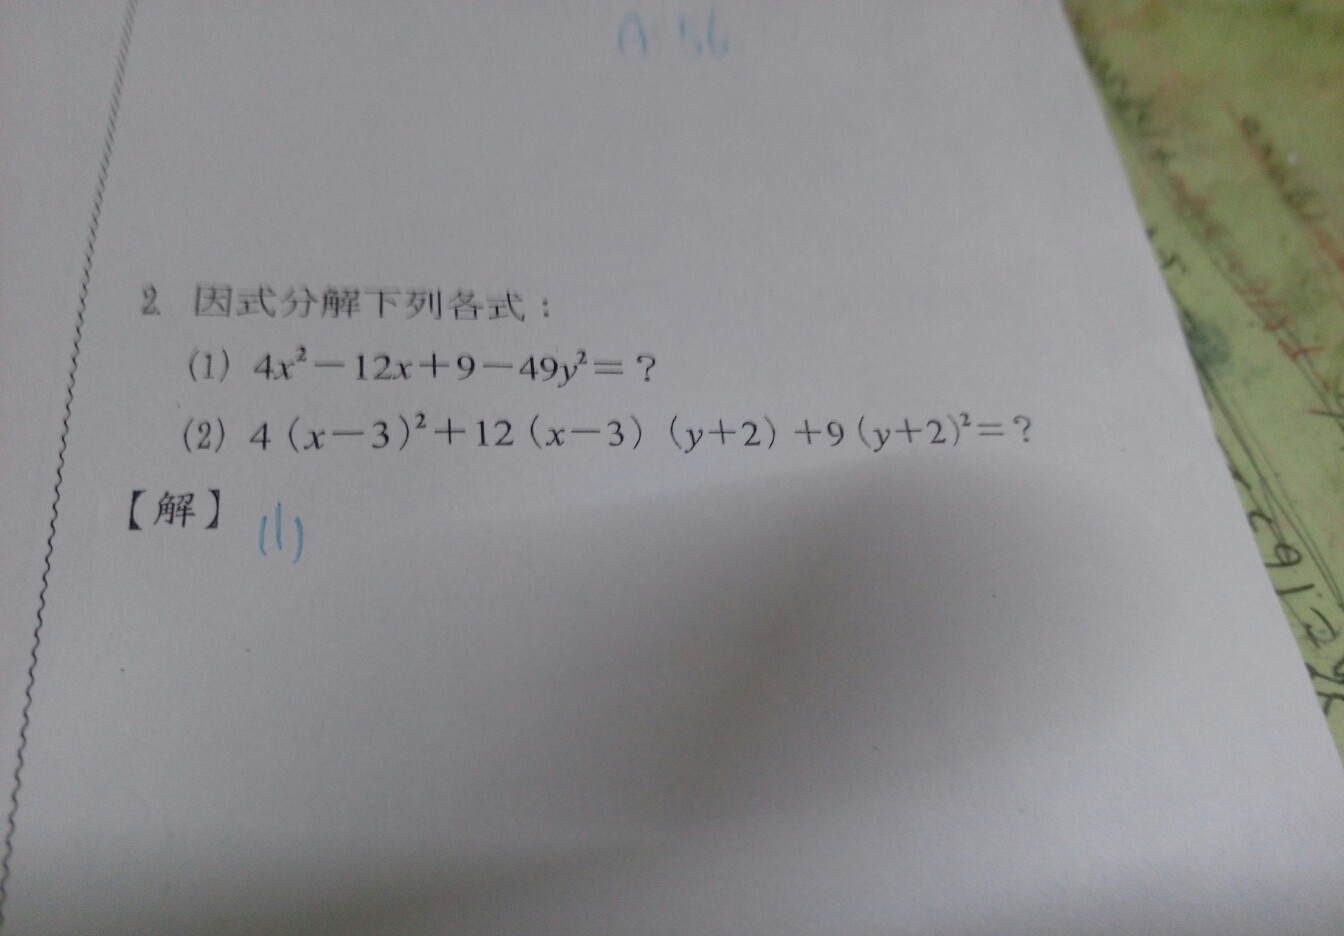 A 56
2. 因式分解下列各式：
(1) 4x²－12x＋9－49y²＝？
(2) 4（x－3）²＋12（x－3）（y＋2）＋9（y＋2）²＝？
【解】 (1)